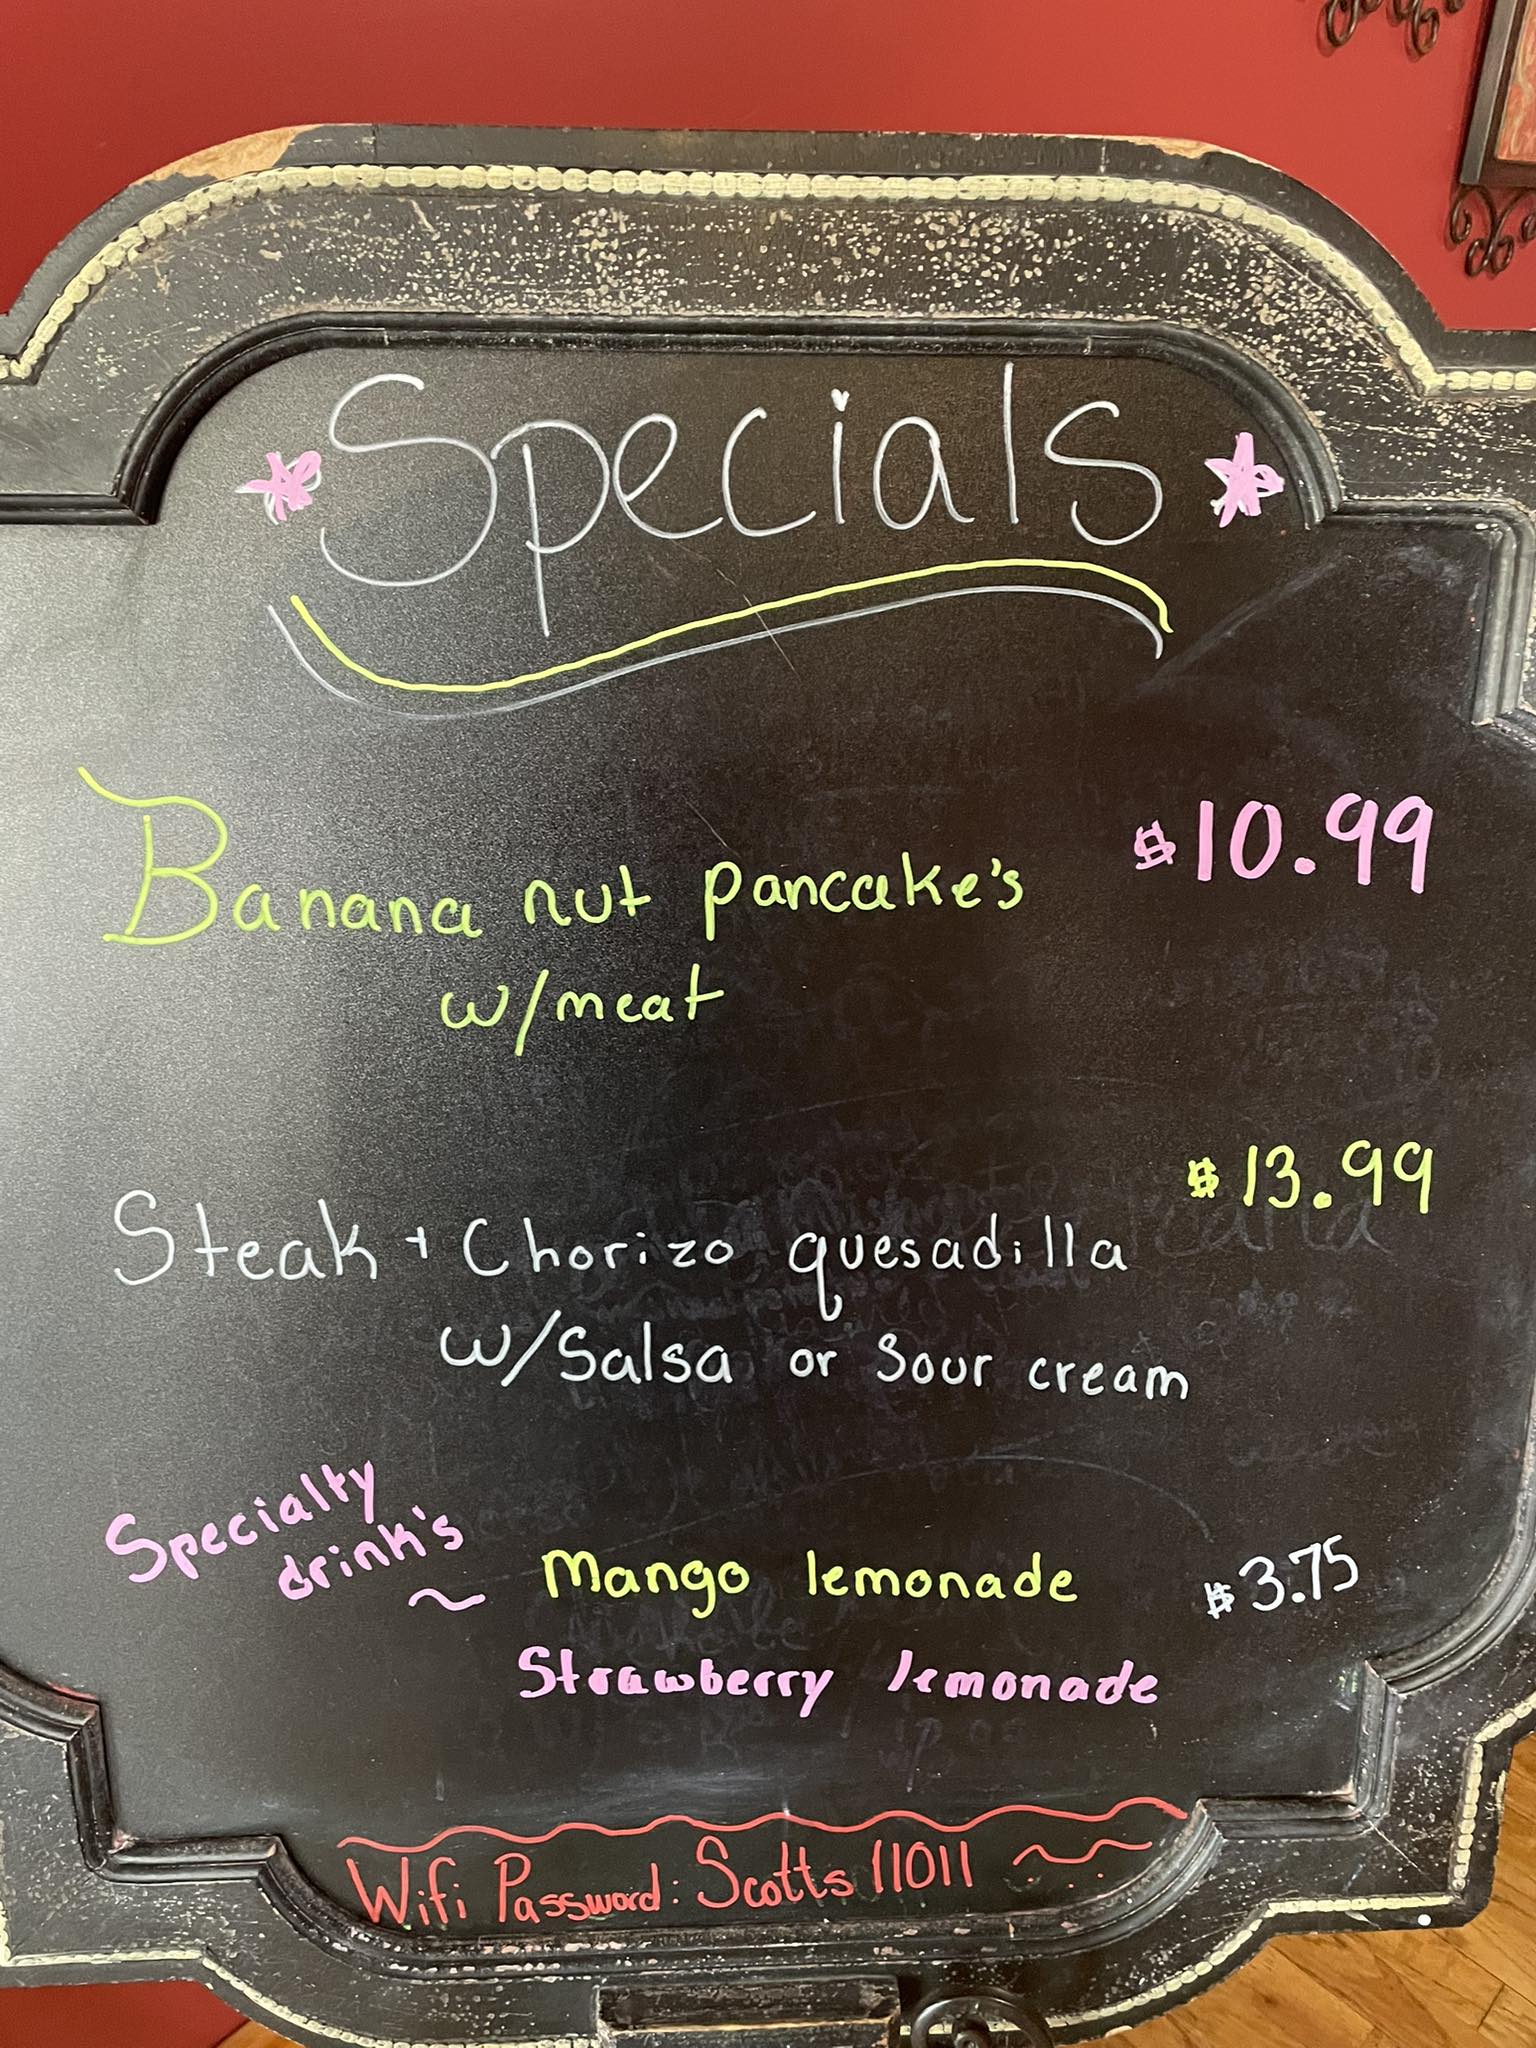 Specials
Banana nut pancake's $10.99
w/meat
$13.99
Steak + Chorizo quesadilla
w/Salsa or Sour cream
Specialty
drink's
~ Mango lemonade $3.75
Strawberry lemonade
Wifi Password: Scotts11011